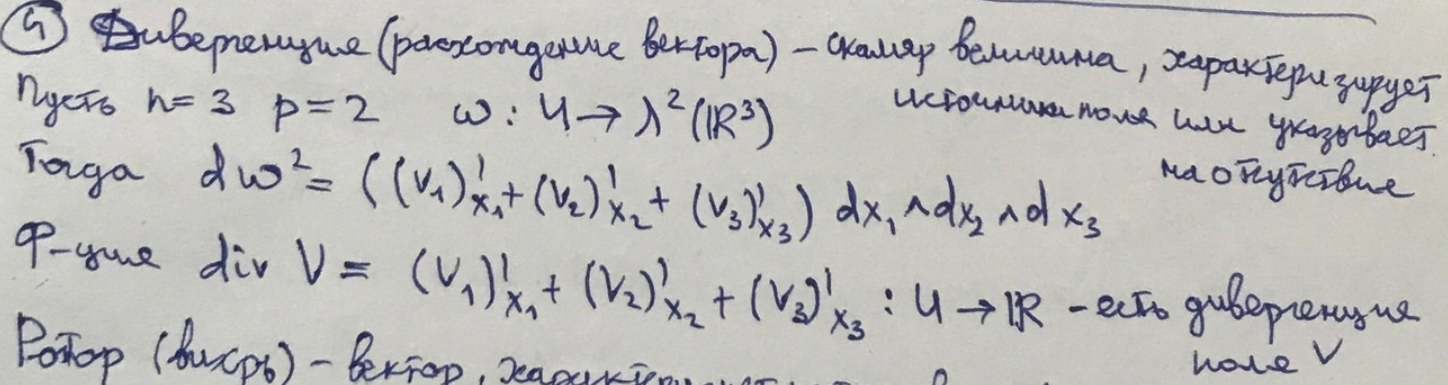 ④ Дивергенция (расхождение вектора) – скаляр величина, характеризирует
источники поля или указывает
на отсутствие
Пусть n=3 p=2 ω: U→λ²(ℝ³)
Тогда dω²= ((V₁)'ₓ₁+(V₂)'ₓ₂+(V₃)'ₓ₃) dx₁∧dx₂∧dx₃
Ф-ция div V = (V₁)'ₓ₁+(V₂)'ₓ₂+(V₃)'ₓ₃ : U→ℝ – есть дивергенция
поля V
Ротор (вихрь) – вектор,